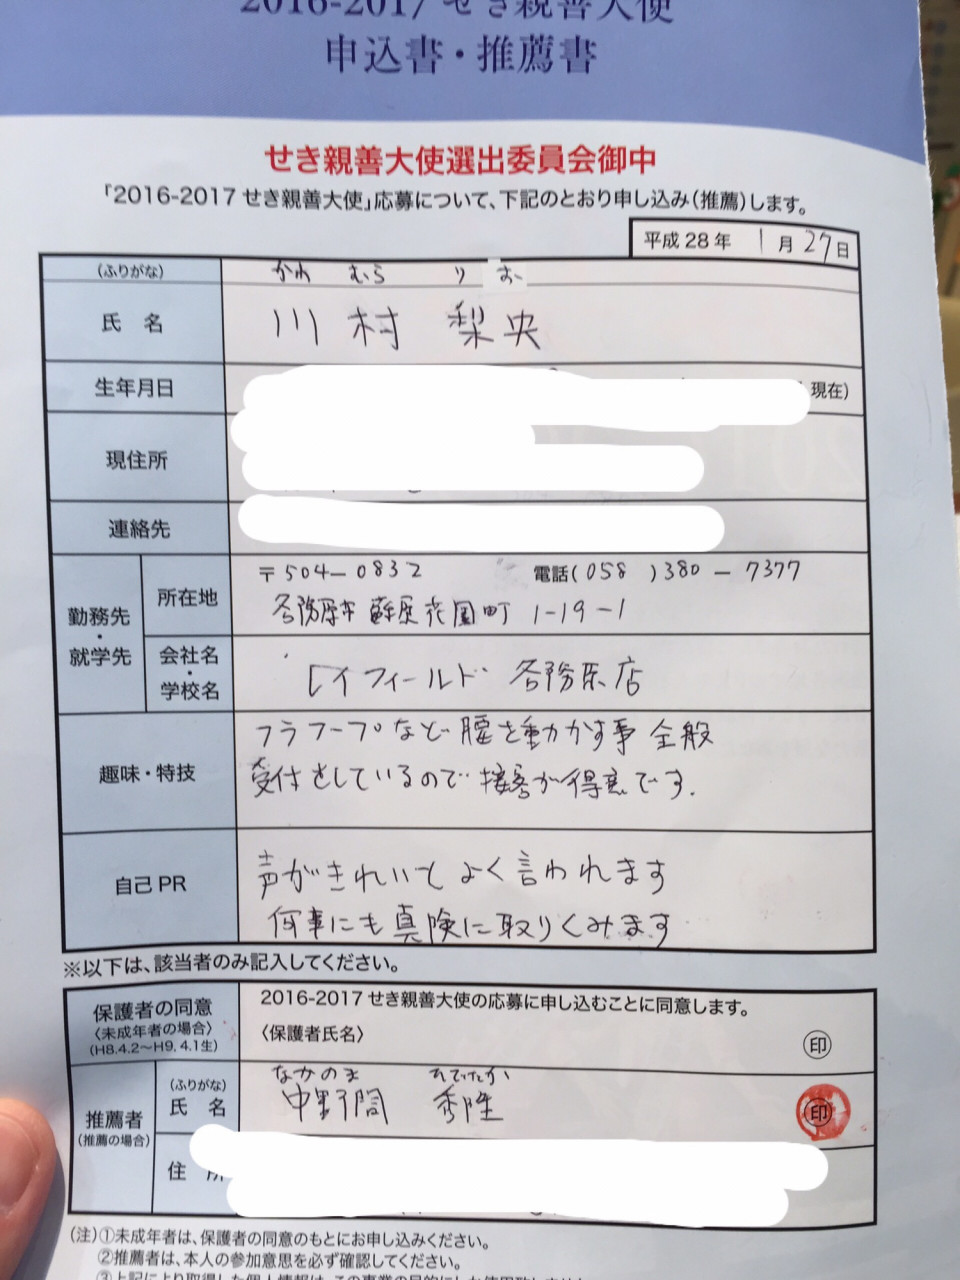 2016-2017 せき親善大使
申込書・推薦書
せき親善大使選出委員会御中
「2016-2017 せき親善大使」応募について、下記のとおり申し込み(推薦)します。
平成28年 1月27日
(ふりがな) かわ むら り お
氏 名 川村 梨央
生年月日 現在)
現住所
連絡先
勤務先・就学先
所在地 〒504-0832 電話(058)380-7377
各務原市蘇原花園町 1-19-1
会社名・学校名 レイフィールド 各務原店
趣味・特技 フラフープなど腰を動かす事 全般
受付をしているので接客が得意です.
自己PR 声がきれいとよく言われます
何事にも真険に取りくみます
※以下は、該当者のみ記入してください。
保護者の同意 2016-2017 せき親善大使の応募に申し込むことに同意します。
〈未成年者の場合〉 〈保護者氏名〉 印
(H8.4.2〜H9.4.1生)
推薦者
(推薦の場合)
(ふりがな) なかのま ひでたか
氏 名 中野間 秀隆 印
住 所
(注)①未成年者は、保護者の同意のもとにお申し込みください。
②推薦者は、本人の参加意思を必ず確認してください。
③上記により取得した個人情報は、この事業の目的にしか使用致しません